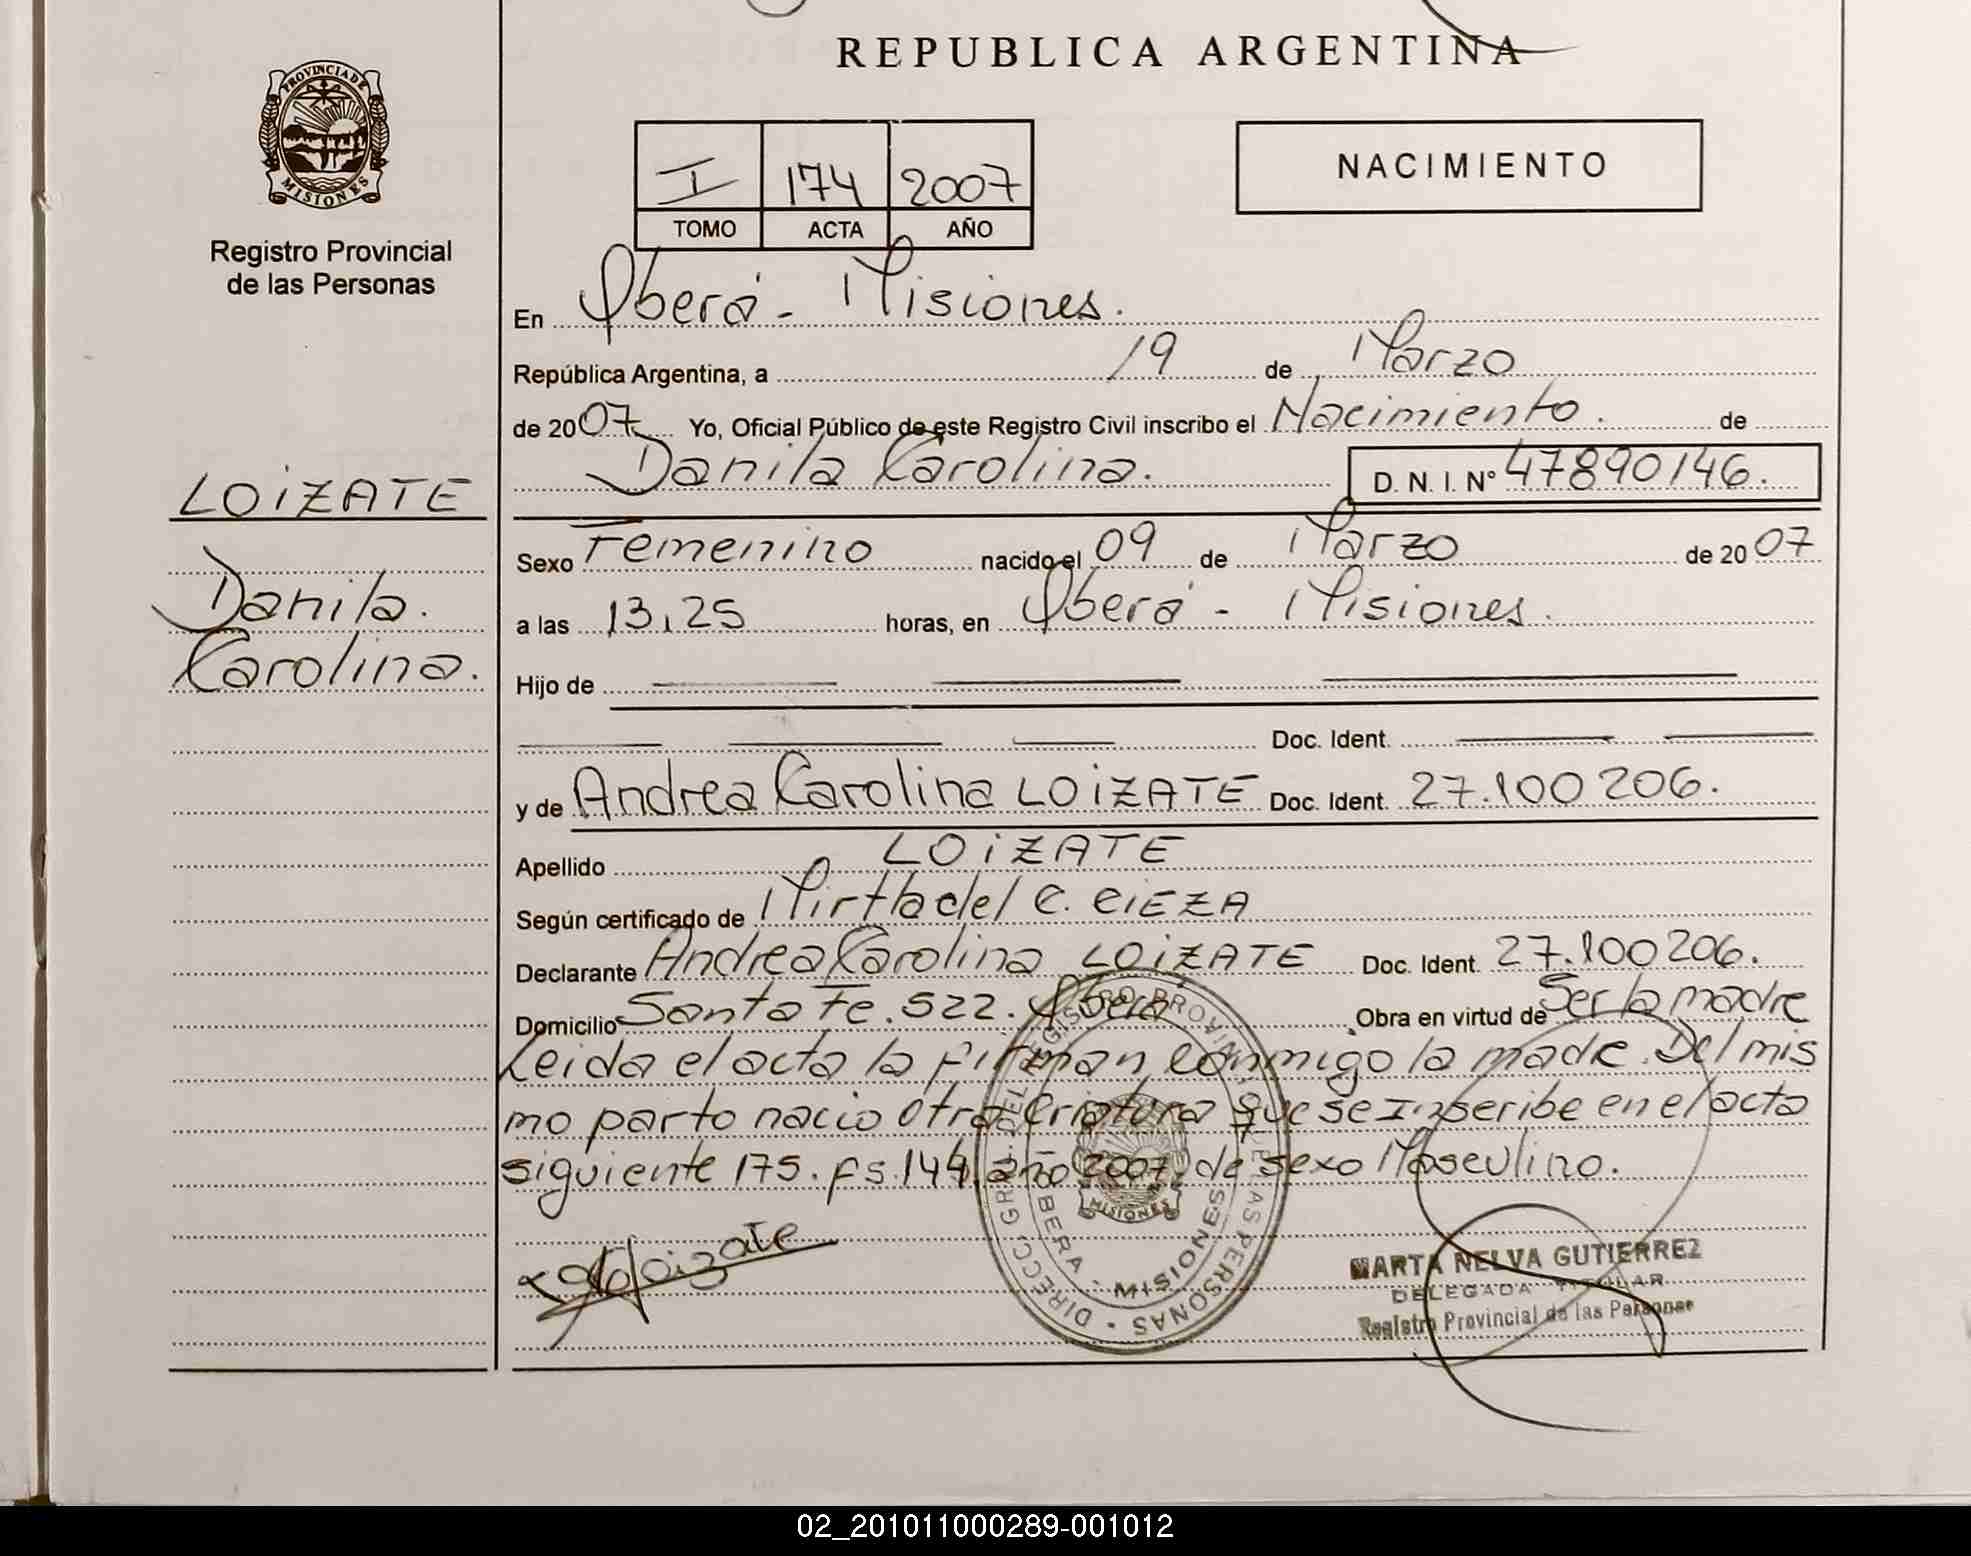 REPUBLICA ARGENTINA
PROVINCIA DE
MISIONES
Registro Provincial
de las Personas
I 174 2007
TOMO ACTA AÑO
NACIMIENTO
En Oberá - Misiones.
República Argentina, a 19 de Marzo
de 2007 Yo, Oficial Público de este Registro Civil inscribo el Nacimiento. de
Danila Carolina. D. N. I. Nº 47890146.
LOiZATE
Danila.
Carolina.
Sexo Femenino nacido el 09 de Marzo de 2007
a las 13,25 horas, en Oberá - Misiones.
Hijo de
Doc. Ident.
y de Andrea Carolina LOiZATE Doc. Ident. 27.100206.
Apellido LOiZATE
Según certificado de Mirtha del C. CiEZA
Declarante Andrea Carolina LOiZATE Doc. Ident. 27.100206.
Domicilio Santa Fe. 522. Oberá Obra en virtud de Ser la madre
Leida el acta la firman conmigo la madre. Del mis
mo parto nacio otra Criatura que se Inscribe en el acta
siguiente 175. fs. 144. año 2007, de sexo Masculino.
Loizate
DIRECC. GRAL. DEL REGISTRO PROVINCIAL DE LAS PERSONAS
OBERA - MISIONES
MISIONES
MARTA NELVA GUTIERREZ
DELEGADA TITULAR
Registro Provincial de las Personas
02_201011000289-001012